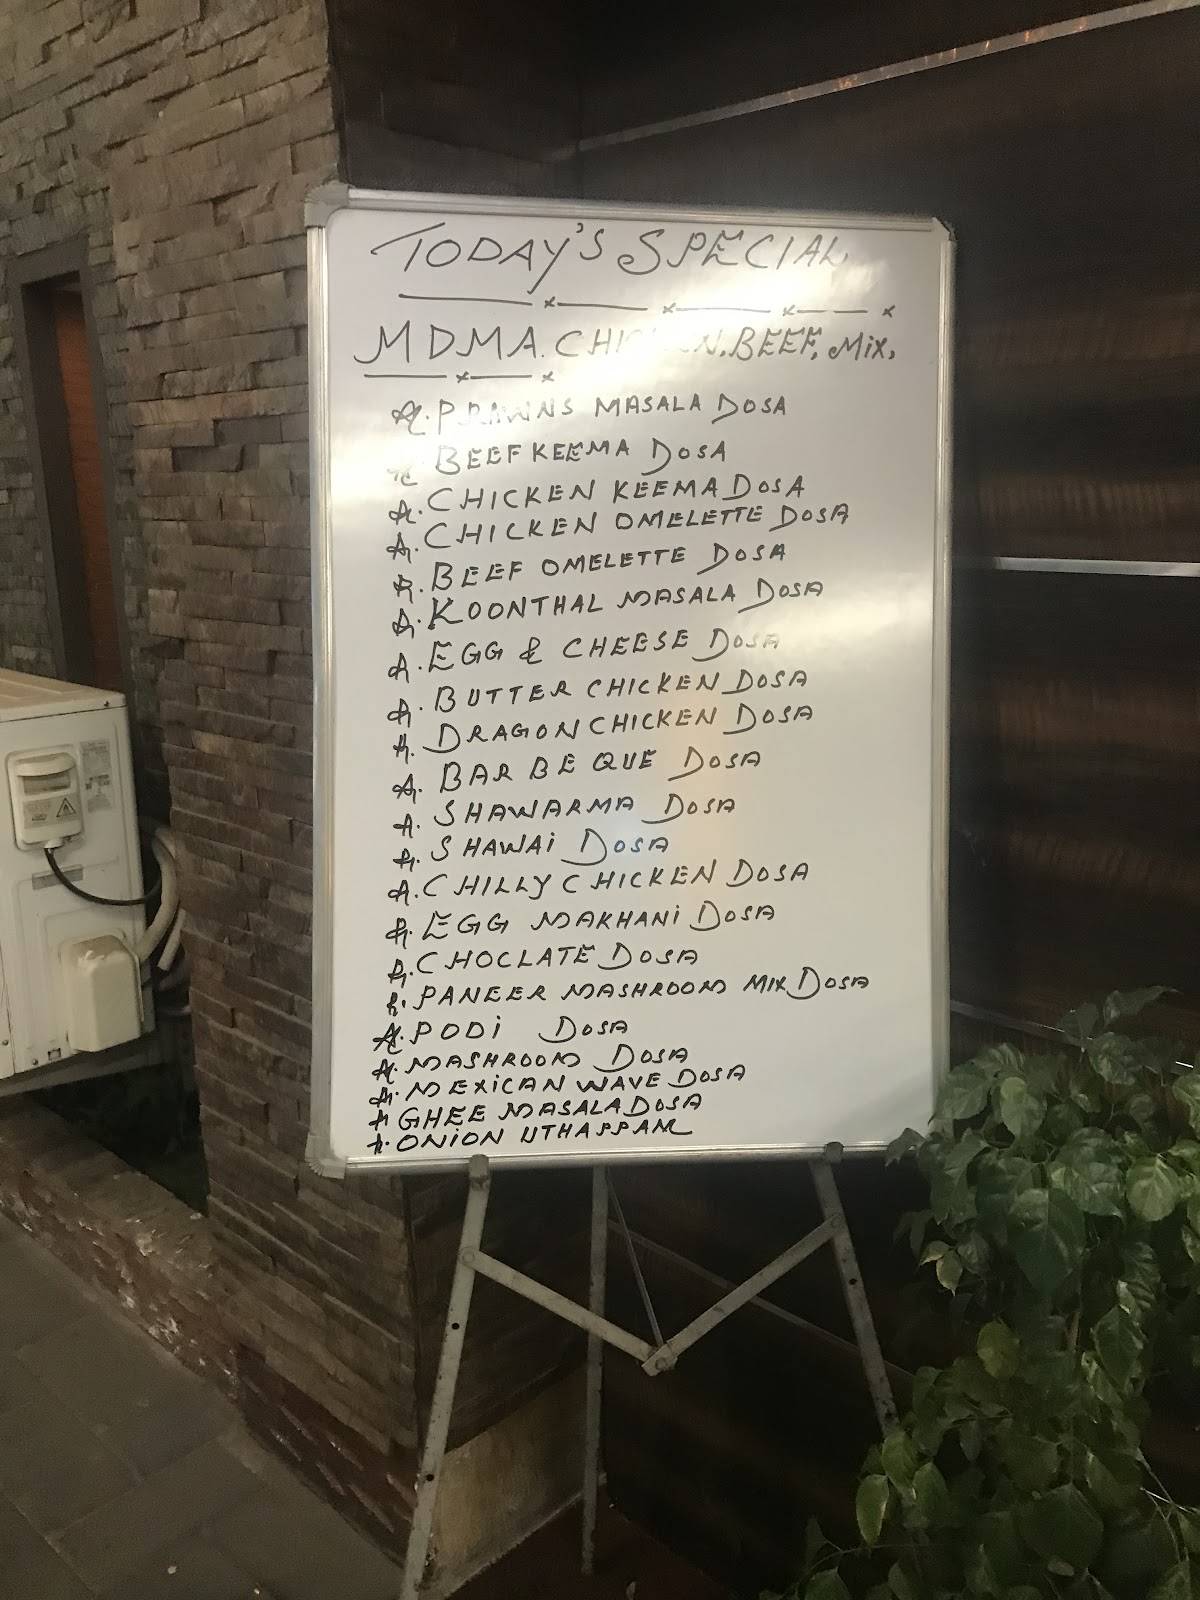 TODAY'S SPECIAL
MDMA. CHICKEN. BEEF, Mix,
PRAWNS MASALA DOSA
BEEF KEEMA DOSA
CHICKEN KEEMA DOSA
CHICKEN OMELETTE DOSA
BEEF OMELETTE DOSA
KOONTHAL MASALA DOSA
EGG & CHEESE DOSA
BUTTER CHICKEN DOSA
DRAGON CHICKEN DOSA
BAR BE QUE DOSA
SHAWARMA DOSA
SHAWAi DOSA
CHILLY CHICKEN DOSA
EGG MAKHANi DOSA
CHOCLATE DOSA
PANEER MASHROOM MIX DOSA
PODi DOSA
MASHROOM DOSA
MEXiCAN WAVE DOSA
GHEE MASALA DOSA
ONiON UTHAPPAM